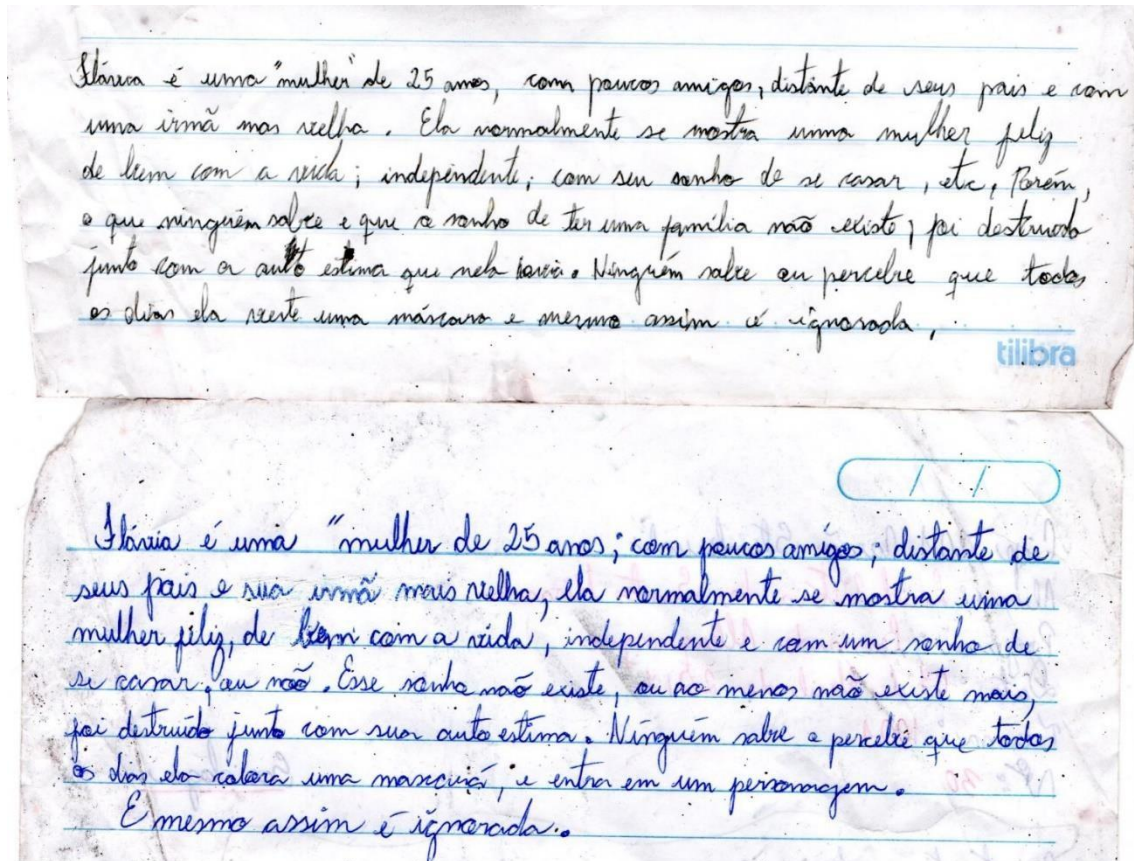 Flávia é uma "mulher" de 25 anos, com poucos amigos, distante de seus pais e com
uma irmã mas velha. Ela normalmente se mostra uma mulher feliz
de bem com a vida; independente; com seu sonho de se casar, etc, Porém,
o que ninguém sabe e que o sonho de ter uma família não existe, foi destruido
junto com a auto estima que nela havia. Ninguém sabe ou percebe que todos
os dias ela veste uma máscara e mesmo assim é ignorada,
tilibra
/ /
Flávia é uma "mulher de 25 anos; com poucos amigos; distante de
seus pais e sua irmã mais velha, ela normalmente se mostra uma
mulher feliz, de bem com a vida, independente e com um sonho de
se casar, ou não. Esse sonho não existe, ou ao menos não existe mais,
foi destruído junto com sua auto estima. Ninguém sabe e percebe que todos
os dias ela coloca uma, e entra em um personagem.
E mesmo assim é ignorada.